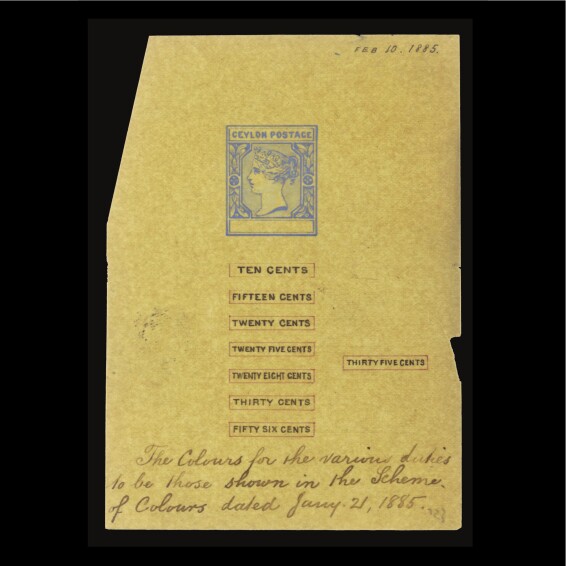 FEB 10. 1885.
CEYLON POSTAGE
TEN CENTS
FIFTEEN CENTS
TWENTY CENTS
TWENTY FIVE CENTS
THIRTY FIVE CENTS
TWENTY EIGHT CENTS
THIRTY CENTS
FIFTY SIX CENTS
The Colours for the various duties
to be those shown in the Scheme.
of Colours dated Jany. 21, 1885.